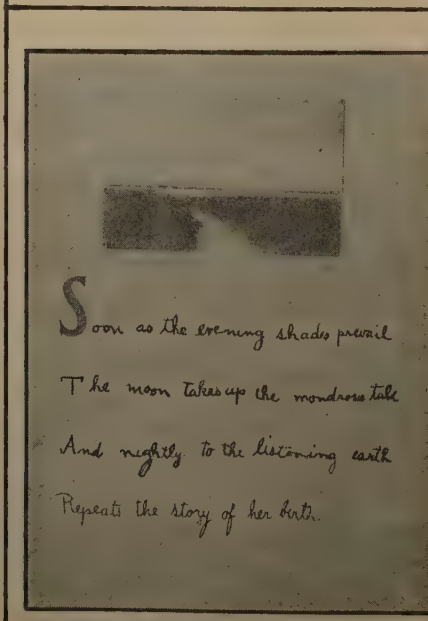 Soon as the evening shades prevail
The moon takes up the mondrous tale
And nightly to the listening earth
Repeats the story of her birth.